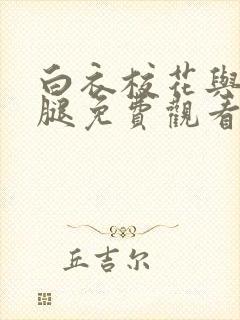 白衣校花與
腿免費觀看
丘吉尔